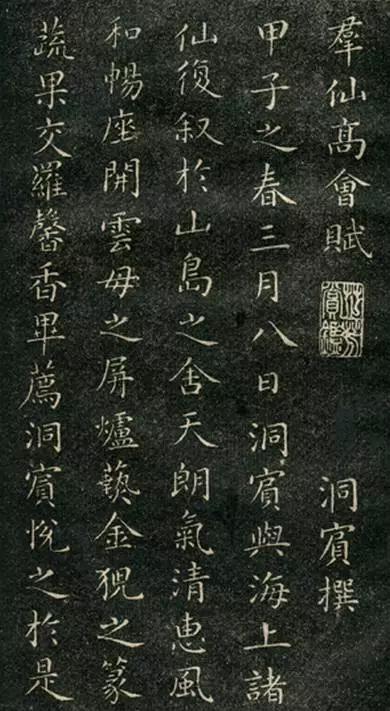 羣仙髙會賦 洞賓撰
甲子之春三月八日洞賓與海上諸
仙復叙於山島之舍天朗氣清恵風
和暢座開雲母之屏爐藝金猊之篆
蔬果交羅馨香畢薦洞賓悅之於是